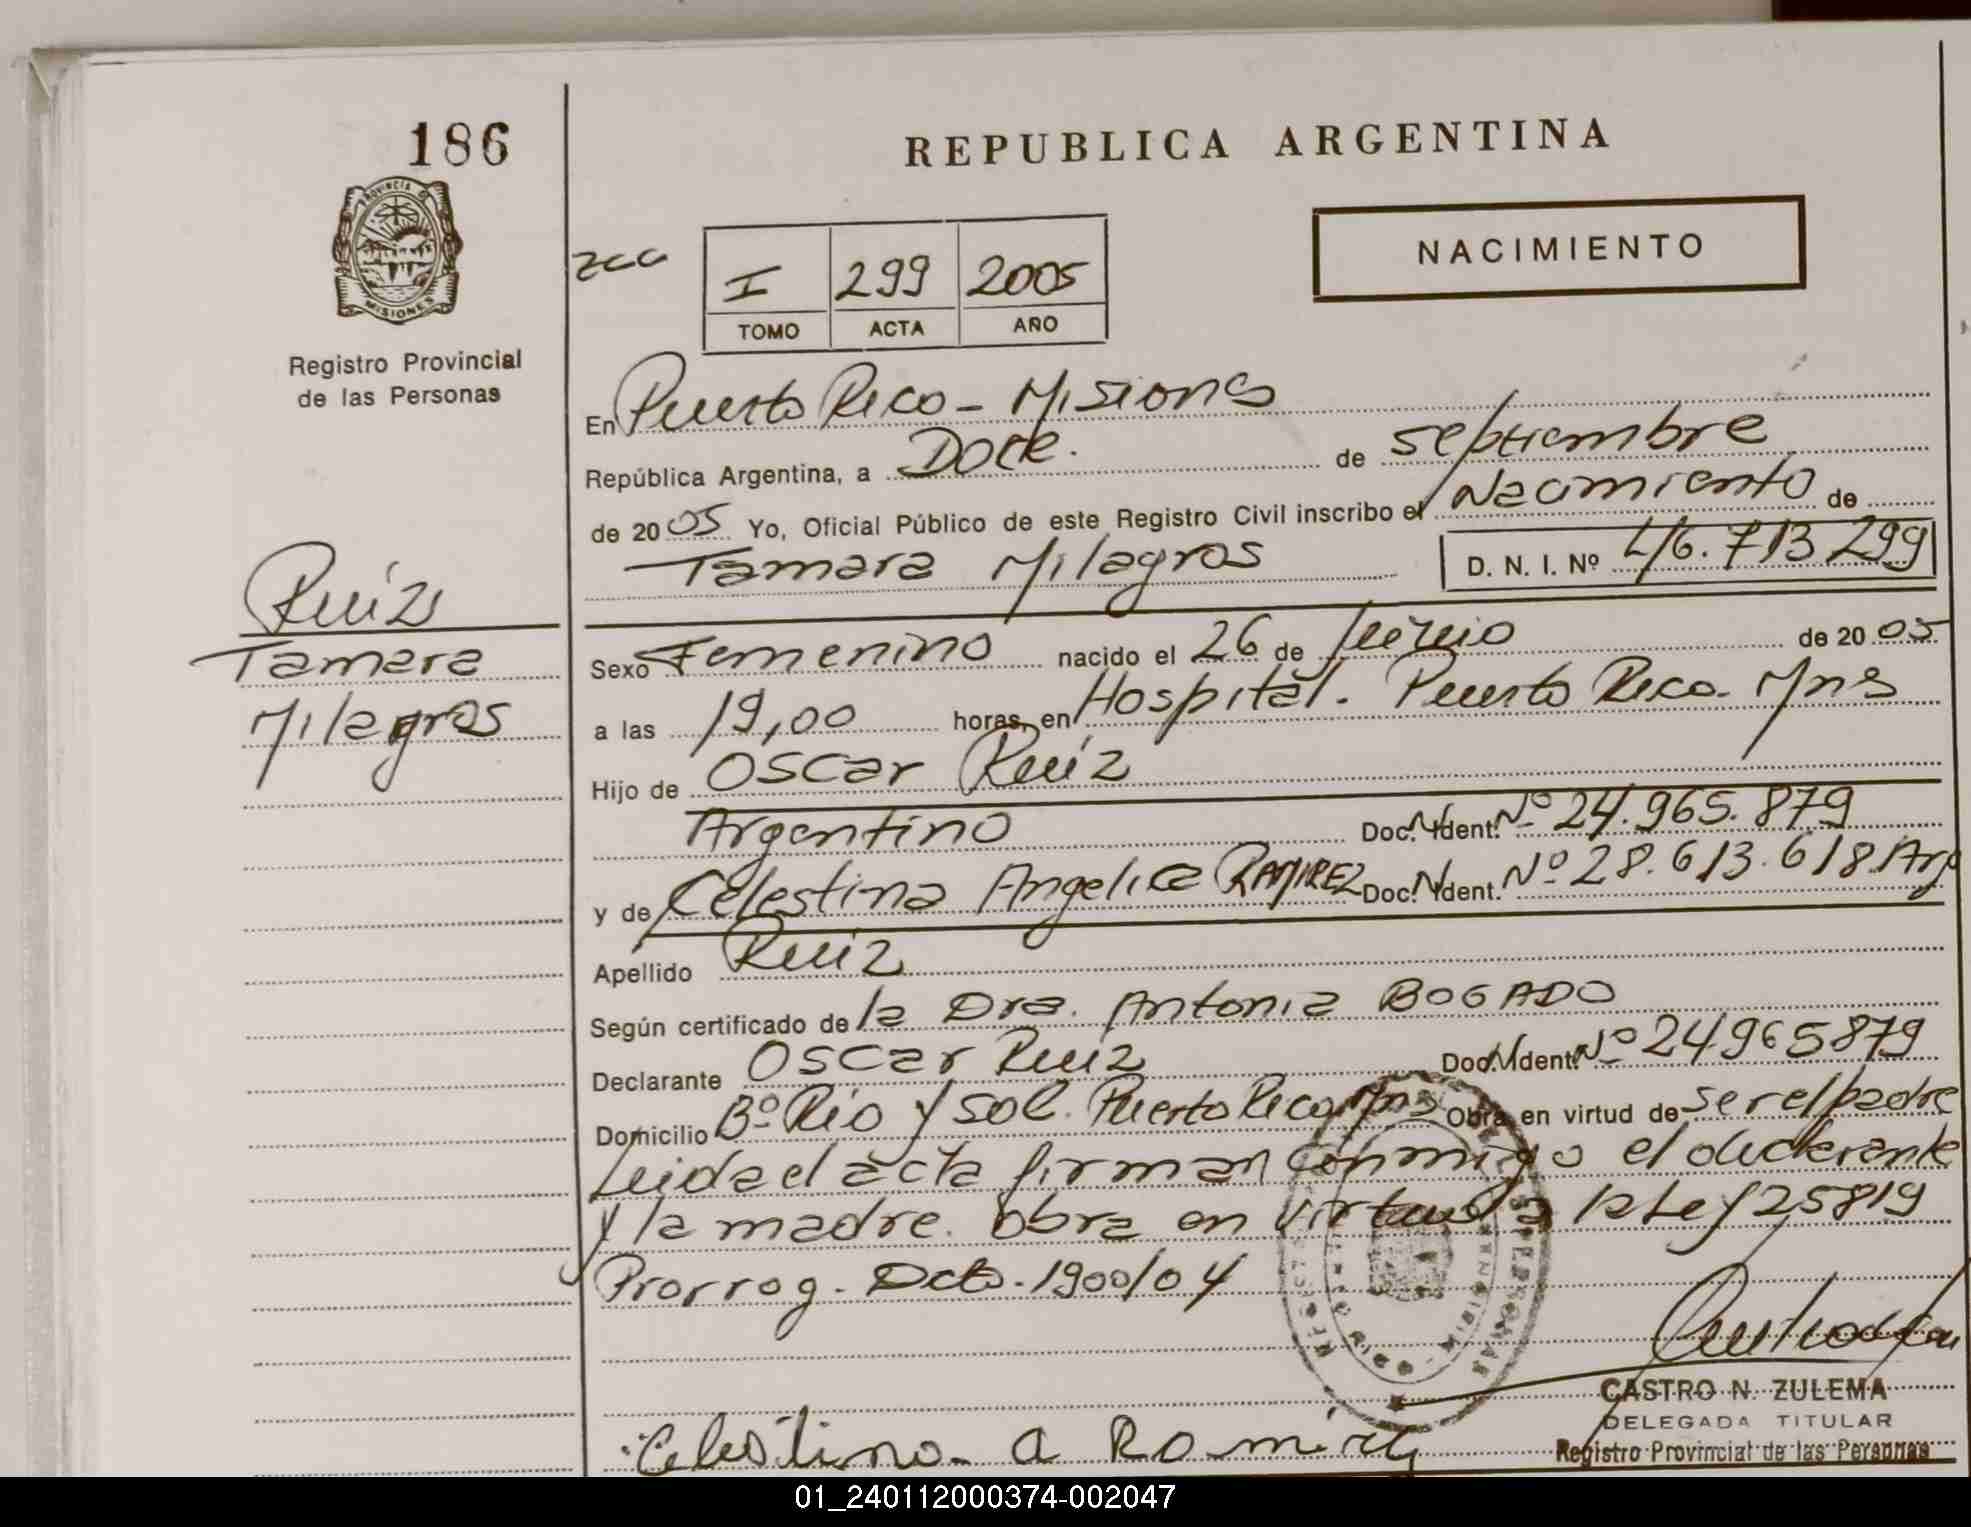 186
REPUBLICA ARGENTINA
PROVINCIA DE
MISIONES
NACIMIENTO
I 299 2005
TOMO ACTA AÑO
Registro Provincial
de las Personas
En Puerto Rico - Misiones
República Argentina, a Doce. de septiembre
de 20 05 Yo, Oficial Público de este Registro Civil inscribo el Nacimiento de
Tamara Milagros D. N. I. Nº 46.713 299
Ruíz
Tamara
Milagros
Sexo Femenino nacido el 26 de de 20 05
a las 19,00 horas, en Hospital. Puerto Rico. Mnes
Hijo de Oscar Ruíz
Argentino Doc. Ident. Nº 24.965.879
y de Celestina Angelica RAMIREZ Doc. Ident. Nº 28.613.618 Arg
Apellido Ruíz
Según certificado de la Dra. Antonia BOGADO
Declarante Oscar Ruiz Doc. Ident. Nº 24965879
Domicilio Bº Río y Sol. Puerto Rico Mns Obra en virtud de ser el padre
Leida el acta firman conmigo el declarante
y la madre. Obra en virtud a la Ley 25819
Prorrog. Dcto. 1900/04
CASTRO N. ZULEMA
DELEGADA TITULAR
Registro Provincial de las Personas
Celestina A Ramirez
01_240112000374-002047